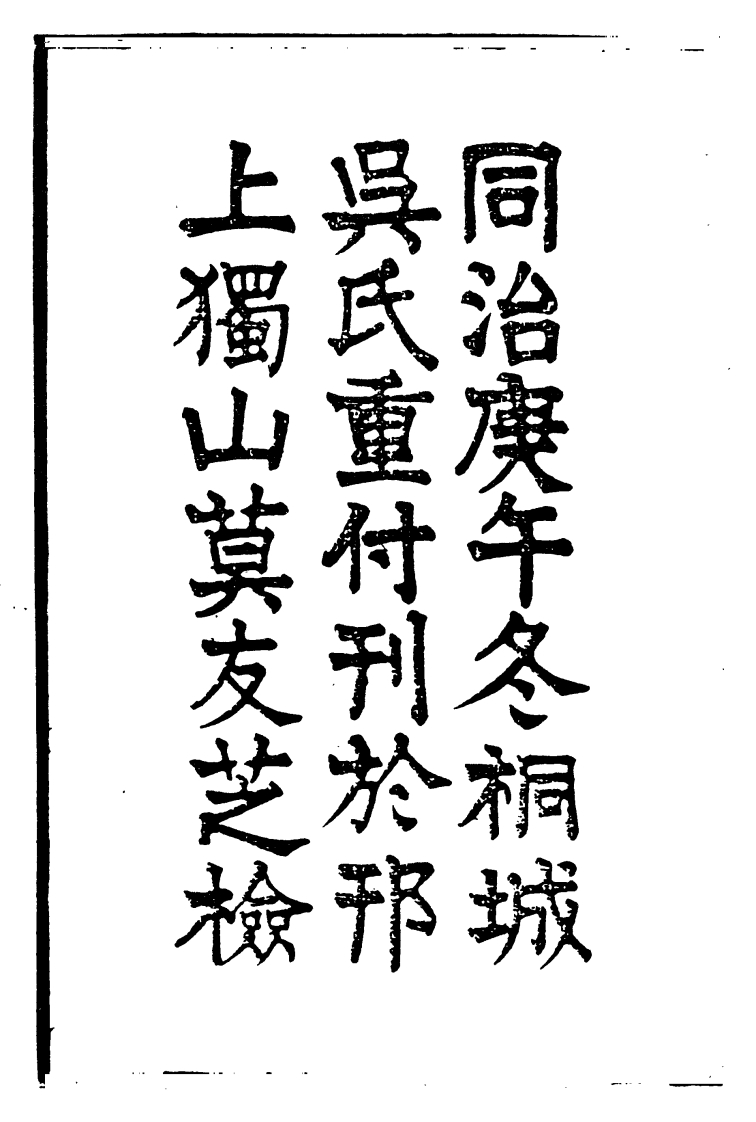 同治庚午冬桐城
吳氏重付刊於邗
上獨山莫友芝檢